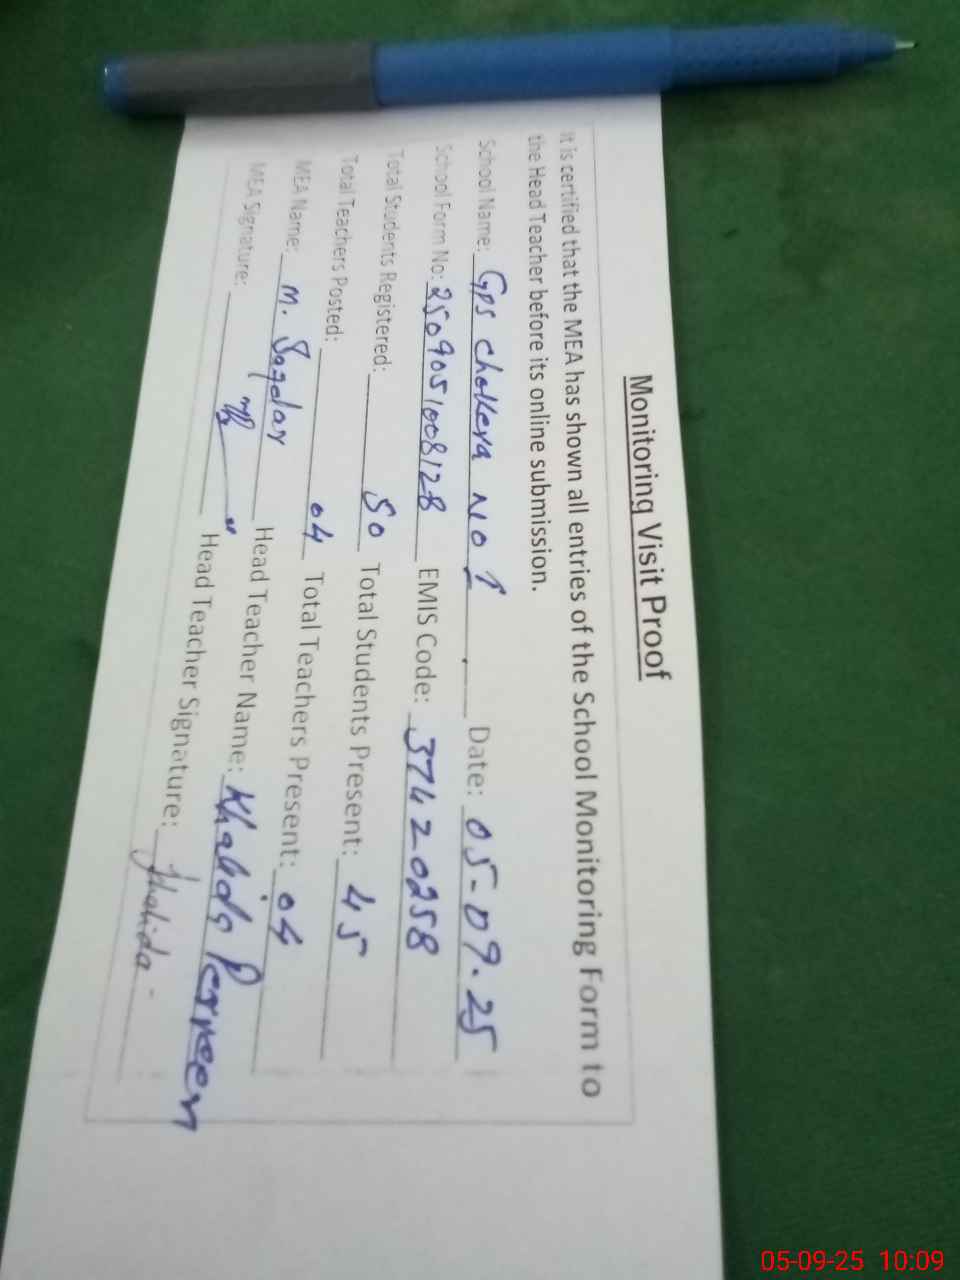 Monitoring Visit Proof
It is certified that the MEA has shown all entries of the School Monitoring Form to
the Head Teacher before its online submission.
School Name: GPS Chakera No 1 Date: 05-09-25
School Form No: 2509051008128 EMIS Code: 37420258
Total Students Registered: 50 Total Students Present: 45
Total Teachers Posted: 04 Total Teachers Present: 04
MEA Name: M. Head Teacher Name: Khalida Perveen
MEA Signature: Head Teacher Signature: Khalida
05-09-25 10:09